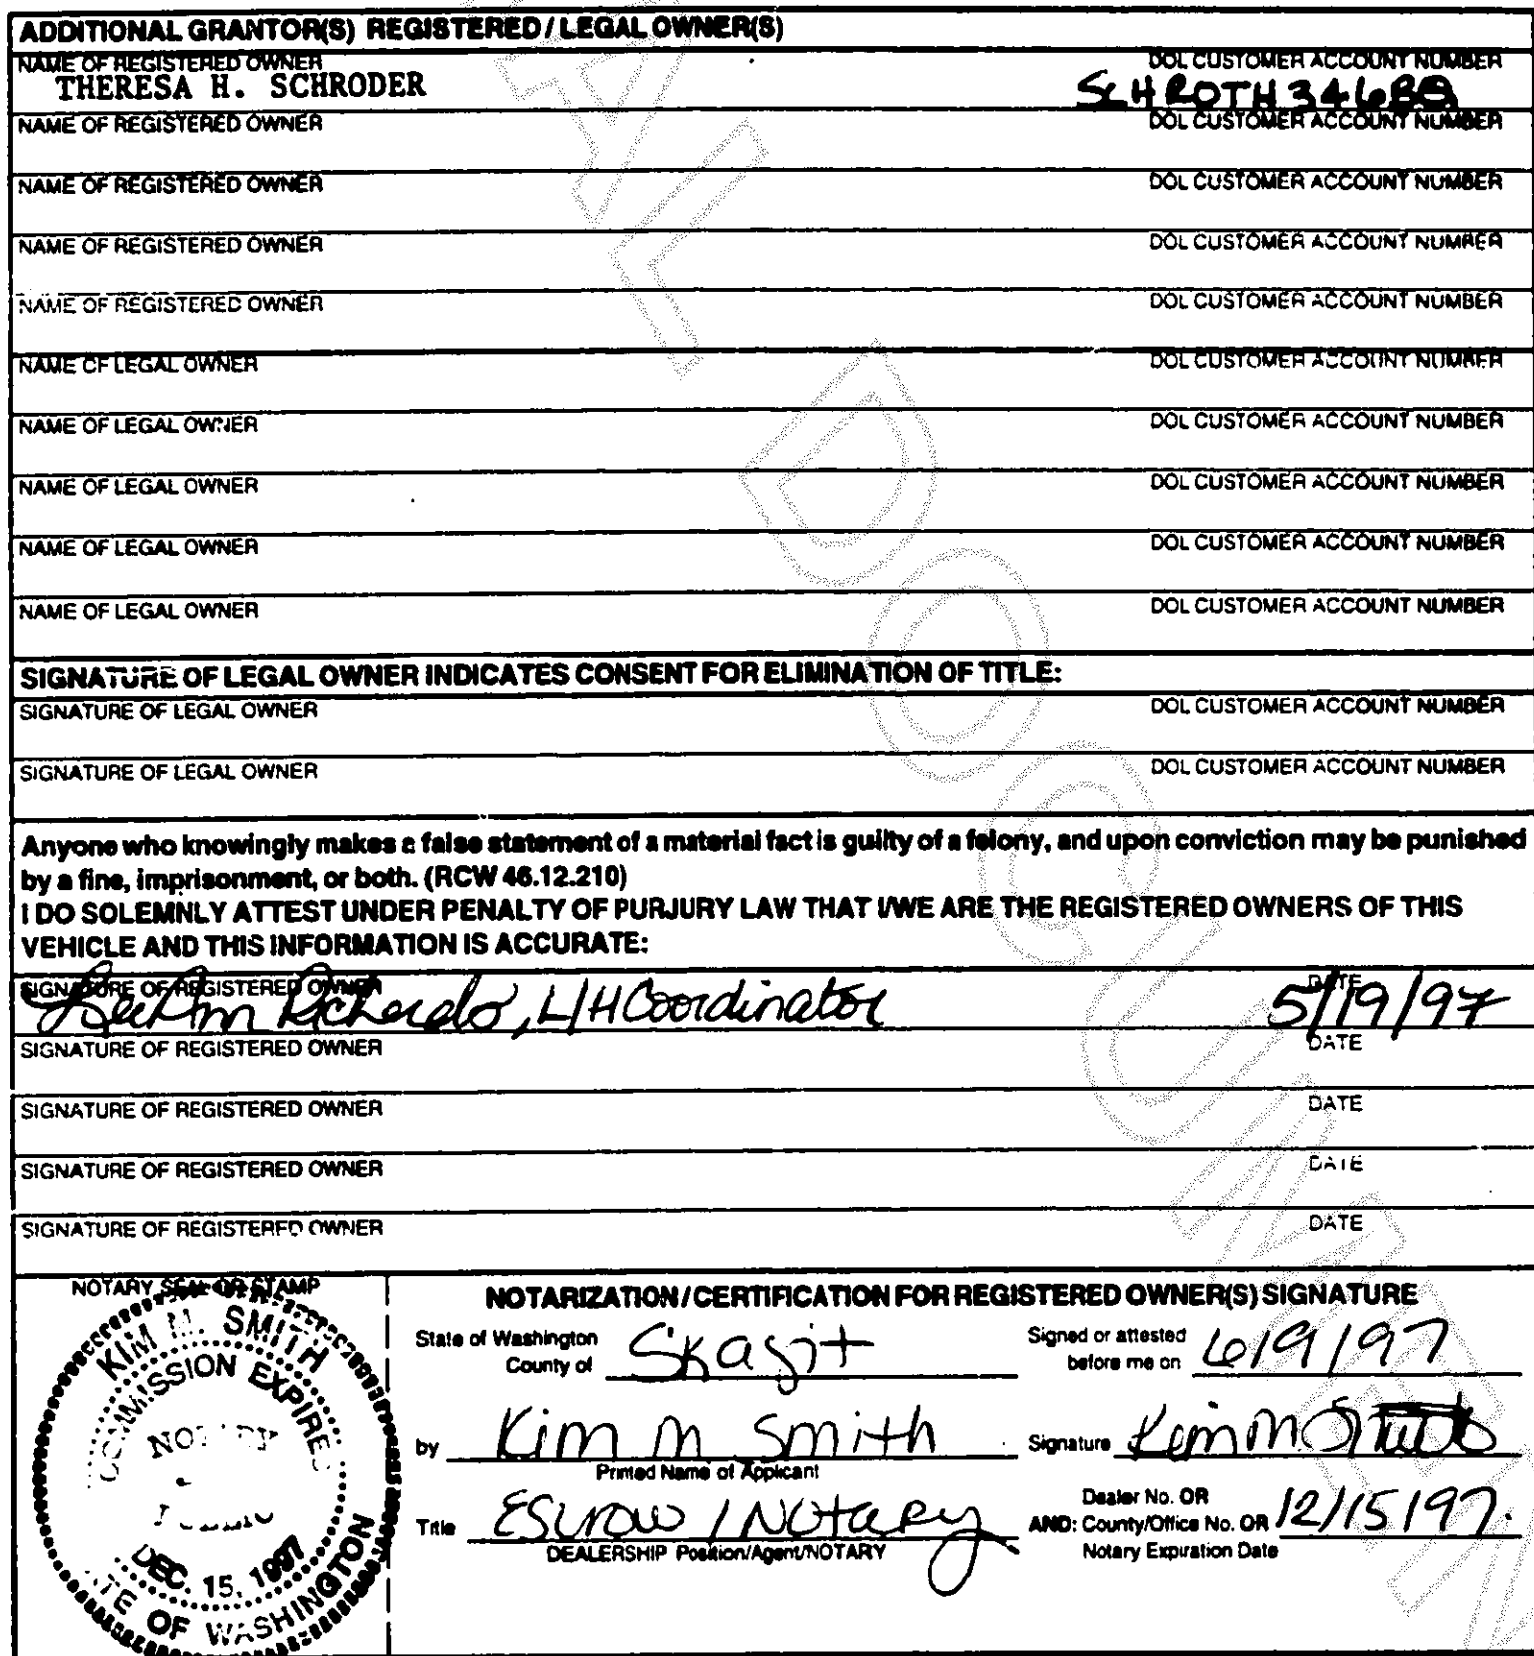 ADDITIONAL GRANTOR(S) REGISTERED / LEGAL OWNER(S)
NAME OF REGISTERED OWNER DOL CUSTOMER ACCOUNT NUMBER
THERESA H. SCHRODER SCHROTH346BQ
NAME OF REGISTERED OWNER DOL CUSTOMER ACCOUNT NUMBER
NAME OF REGISTERED OWNER DOL CUSTOMER ACCOUNT NUMBER
NAME OF REGISTERED OWNER DOL CUSTOMER ACCOUNT NUMBER
NAME OF REGISTERED OWNER DOL CUSTOMER ACCOUNT NUMBER
NAME OF LEGAL OWNER DOL CUSTOMER ACCOUNT NUMBER
NAME OF LEGAL OWNER DOL CUSTOMER ACCOUNT NUMBER
NAME OF LEGAL OWNER DOL CUSTOMER ACCOUNT NUMBER
NAME OF LEGAL OWNER DOL CUSTOMER ACCOUNT NUMBER
NAME OF LEGAL OWNER DOL CUSTOMER ACCOUNT NUMBER
SIGNATURE OF LEGAL OWNER INDICATES CONSENT FOR ELIMINATION OF TITLE:
SIGNATURE OF LEGAL OWNER DOL CUSTOMER ACCOUNT NUMBER
SIGNATURE OF LEGAL OWNER DOL CUSTOMER ACCOUNT NUMBER
Anyone who knowingly makes a false statement of a material fact is guilty of a felony, and upon conviction may be punished
by a fine, imprisonment, or both. (RCW 46.12.210)
I DO SOLEMNLY ATTEST UNDER PENALTY OF PURJURY LAW THAT I/WE ARE THE REGISTERED OWNERS OF THIS
VEHICLE AND THIS INFORMATION IS ACCURATE:
SIGNATURE OF REGISTERED OWNER DATE
L/H Coordinator 5/19/97
SIGNATURE OF REGISTERED OWNER DATE
SIGNATURE OF REGISTERED OWNER DATE
SIGNATURE OF REGISTERED OWNER DATE
SIGNATURE OF REGISTERED OWNER DATE
NOTARY SEAL OR STAMP
KIM M. SMITH
COMMISSION EXPIRES
NOTARY
PUBLIC
DEC. 15, 1997
STATE OF WASHINGTON
NOTARIZATION / CERTIFICATION FOR REGISTERED OWNER(S) SIGNATURE
State of Washington
County of Skagit
Signed or attested
before me on 6/9/97
by Kim M Smith
Printed Name of Applicant
Signature Kim M Smith
Title Escrow / Notary
DEALERSHIP Position/Agent/NOTARY
Dealer No. OR
AND: County/Office No. OR 12/15/97.
Notary Expiration Date